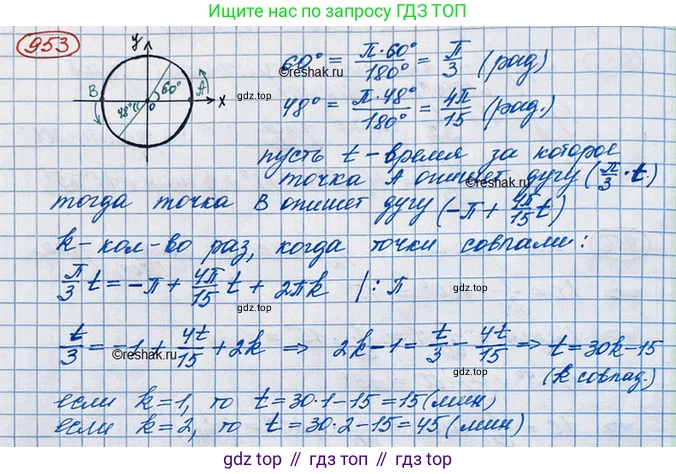 Ищите по запросу ГДЗ ТОП
953
y
B
A
60°
48°
0
x
60° = π·60°/180° = π/3 (рад)
©reshak.ru
gdz.top
48° = π·48°/180° = 4π/15 (рад.)
gdz.top
пусть t - время за которое
точка A опишет дугу (π/3 · t)
©reshak.ru
тогда точка B опишет дугу (-π + 4π/15 t)
k - кол-во раз, когда точки совпали:
π/3 t = -π + 4π/15 t + 2πk | : π
t/3 = -1 + 4t/15 + 2k ⇒ 2k-1 = t/3 - 4t/15 ⇒ t = 30k-15
©reshak.ru
gdz.top
(k совпад.)
если k=1, то t = 30·1-15 = 15 (мин)
если k=2, то t = 30·2-15 = 45 (мин)
gdz.top // гдз.топ // гдз топ